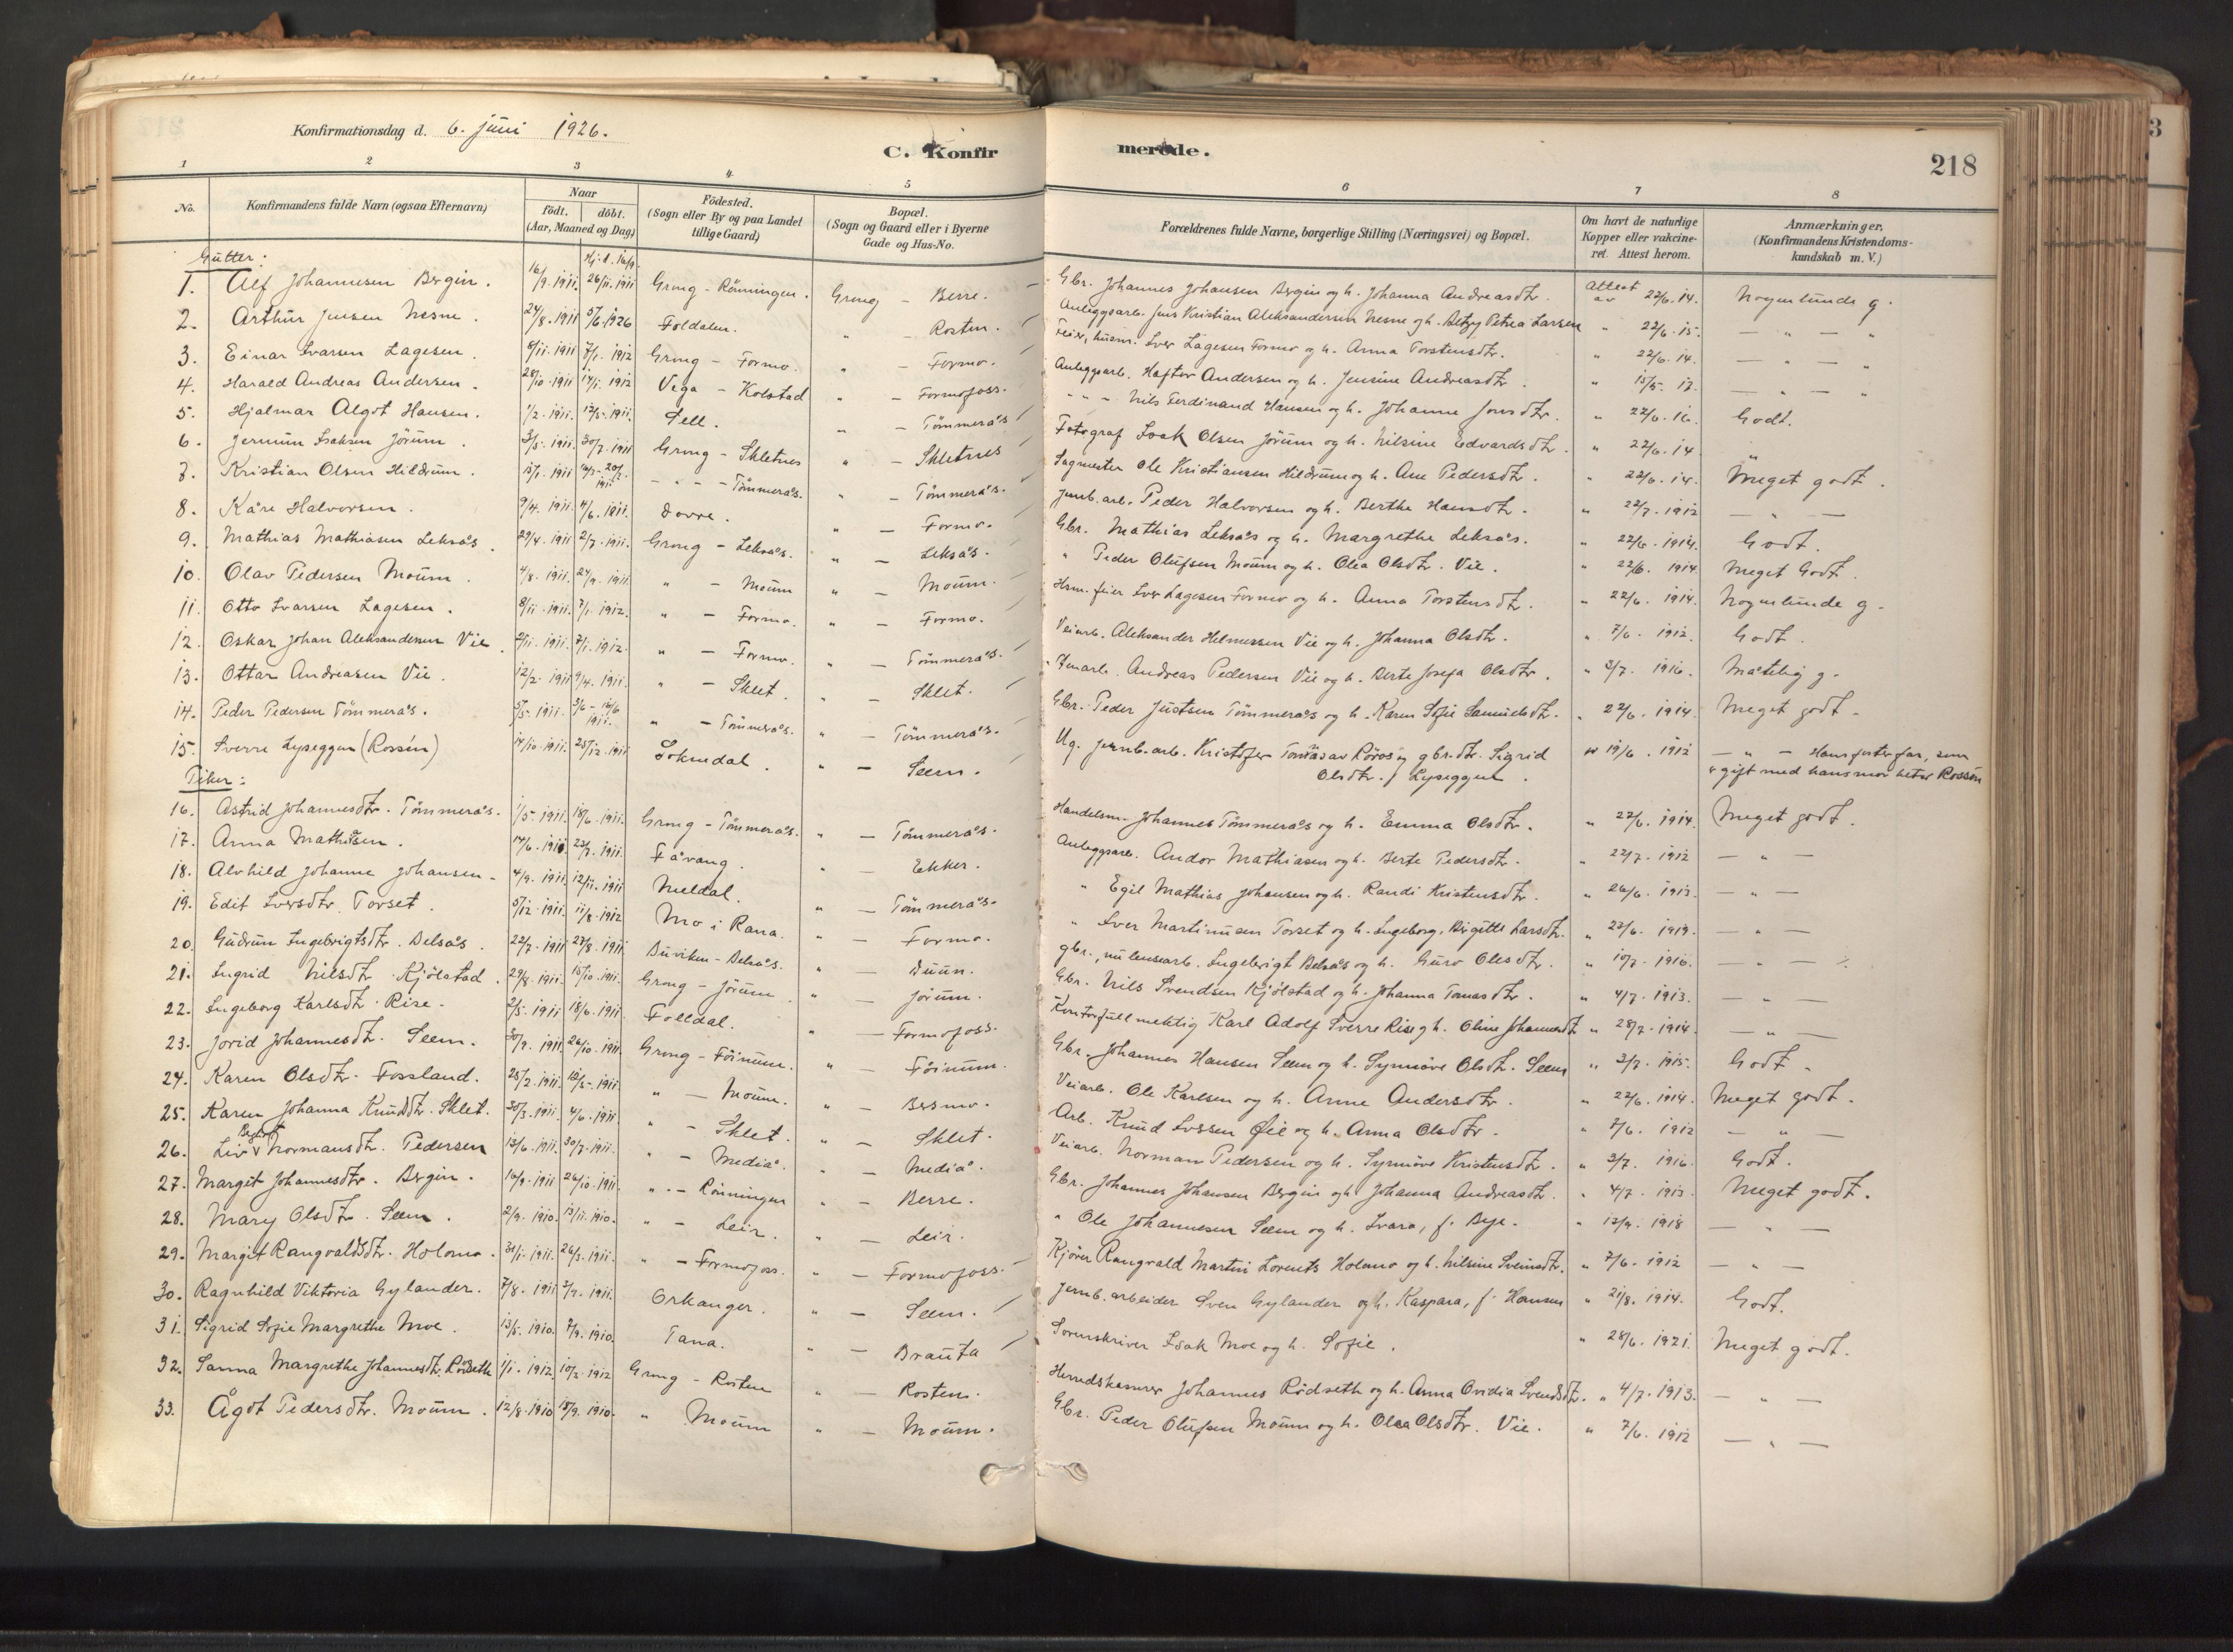 Konfirmationsdag d. 6. juni 1926.
C. Konfirmerede.
218
1 2 3 4 5 6 7 8
No.
Konfirmandens fulde Navn (ogsaa Efternavn)
Naar
födt. döbt.
(Aar, Maaned og Dag)
Födested.
(Sogn eller By og paa Landet
tillige Gaard)
Bopæl.
(Sogn og Gaard eller i Byerne
Gade og Hus-No.
Forældrenes fulde Navne, borgerlige Stilling (Næringsvei) og Bopæl.
Om havt de naturlige
Kopper eller vakcine-
ret. Attest herom.
Anmærkninger.
(Konfirmandens Kristendoms-
kundskab m. V.)
Gutter: Hj. d. 16/9.
1. Alf Johannesen Bergin. 16/9. 1911. 26/11. 1911 Grong - Rönningen. Grong - Berre. Gbr. Johannes Johansen Bergin og h. Johanna Andreasdtr. Attest av 22/6. 14. Nogenlunde g.
2. Arthur Jensen Nesne. 24/8. 1911 5/6 1926 Foldalen. " - Rosten. Anleggsarb. Jens Kristian Aleksandersen Nesne og h. Betzy Petrea Larsen " 22/6. 15. — " — "
3. Einar Ivarsen Lagesen. 8/11. 1911 7/1. 1912 Grong - Formo. " - Formo. Feier, husm. Iver Lagesen Formo og h. Anna Torstensdtr. " 22/6. 14. — " — "
4. Harald Andreas Andersen. 28/10. 1911 14/1. 1912 Vega - Kolstad " - Formofoss. Anleggsarb. Haftor Andersen og h. Jensine Andreasdtr. " 15/5. 12. — " — "
5. Hjalmar Algot Hansen. 1/2. 1911. 12/5. 1911. Sell. " - Tömmerås " - " Nils Ferdinand Hansen og h. Johanne Jonsdtr. " 22/6. 16. Godt.
6. Jermun Isaksen Jörum. 3/5. 1911. 30/7. 1911 Grong - Skletnes " - Skletnes Fotograf Isak Olsen Jörum og h. Nilsine Edvardsdtr. " 22/6. 14 "
7. Kristian Olsen Hildrum. 15/1. 1911 - Tömmerås. " - Tömmerås. Sagmester Ole Kristiansen Hildrum og h. Ane Pedersdtr. " 22/6. 14. Meget godt.
8. Kåre Halvorsen. 9/4. 1911. 4/6. 1911. Dovre. " - Formo. Jernb. arb. Peder Halvorsen og h. Berthe Hansdtr. " 22/7. 1912 — " —
9. Mathias Mathiasen Leksås. 29/4. 1911 2/7. 1911. Grong - Leksås. " - Leksås. Gbr. Mathias Leksås og h. Margrethe Leksås. " 22/6. 1914. Godt.
10. Olav Pedersen Moum. 4/8. 1911. 24/9. 1911. " - Moum " - Moum. " Peder Olufsen Moum og h. Olea Olsdtr. Vie. " 22/6. 1914 Meget Godt.
11. Otto Ivarsen Lagesen. 8/11. 1911. 7/1. 1912. " - Formo. " - Formo. Hsm. feier Iver Lagesen Formo og h. Anna Torstensdtr. " 22/6. 1914. Nogenlunde g.
12. Oskar Johan Aleksandersen Vie. 2/11. 1911. 7/1. 1912. " - Formo. " - Tömmerås. Veiarb. Aleksander Helmersen Vie og h. Johanna Olsdtr. " 7/6. 1912. Godt.
13. Ottar Andreasen Vie. 12/2. 1911 9/4. 1911. " - Sklet. " - Sklet. Andreas Pedersen Vie og h. Berte Josefa Olsdtr. " 3/7. 1916. Måtelig g.
14. Peder Pedersen Tömmerås. 5/5. 1911. 5/6 - 16/6 1911. " - Tömmerås. " - Tömmerås. Gbr. Peder Justsen Tömmerås og h. Karen Sofie Samuelsdtr. " 22/6. 1914 Meget godt.
15. Sverre Lyseggen (Rossén) 14/10. 1911. 25/12. 1911 Soknedal. " - Seem. Ug. jernb. arb. Kristofer Tomasav Röros og gbr.dtr. Sigrid Olsdtr. Lyseggen. 19/6. 1912 — " — Hans fosterfar, som er gift med hans mor heter Rossén
Piker:
16. Astrid Johannesdtr. Tömmerås. 1/5. 1911. 18/6. 1911. Grong - Tömmerås. " - Tömmerås. Handelsm. Johannes Tömmerås og h. Emma Olsdtr. " 22/6. 1914. Meget godt.
17. Anna Mathisen. 14/6. 1911. 23/7. 1911. Fåvang. " - Ekker. Anleggsarb. Andor Mathiasen og h. Berte Pedersdtr. " 22/7. 1912 — " —
18. Alvhild Johanne Johansen. 4/9. 1911. 12/11. 1911 Meldal. " - Tömmerås. " Egil Mathias Johansen og h. Randi Kristensdtr. " 26/6. 1913. — " —
19. Edit Iversdtr. Torset. 5/12. 1911. 11/8. 1912 Mo i Rana. " - Formo. " Iver Martinusen Torset og h. Ingeborg Birgitte Larsdtr. " 23/6. 1919. — " —
20. Gudrun Ingebrigtsdtr. Belsås. 22/7. 1911 27/8. 1911 Buviken - Belsås. " - Duun. gbr., nu lensarb. Ingebrigt Belsås og h. Guro Olesdtr. " 10/7. 1916. — " —
21. Ingrid Nilsdtr. Kjölstad. 29/8. 1911. 15/10. 1911. Grong - Jörum. " - Jörum. Gbr. Nils Svendsen Kjölstad og h. Johanna Tomasdtr. " 4/7. 1913. — " —
22. Ingeborg Karlsdtr. Rise. 2/5. 1911 18/6. 1911. Folldal. " - Formofoss. Kontorfullmektig Karl Adolf Sverre Rise og h. Oline Johannesdt. " 28/7. 1914. — " —
23. Jorid Johannesdtr. Seem. 30/9. 1911. 26/10. 1911 Grong - Föinum. " - Föinum. Gbr. Johannes Hansen Seem og h. Synnöve Olsdtr. Seem " 3/7. 1915. Godt.
24. Karen Olsdtr. Fossland. 25/2. 1911. 1911. " - Moum. " - Bersmo. Veiarb. Ole Karlsen og h. Anne Andersdtr. " 22/6. 1914. Meget godt.
25. Karen Johanna Knudsdtr. Sklet. 30/3. 1911. 4/6. 1911. " - Sklet. " - Sklet. Arb. Knud Iversen Öie og h. Anna Olsdtr. " 7/6. 1912 — " —
26. Liv Normansdtr. Pedersen 13/6. 1911. 30/7. 1911. " - Mediå. " - Mediå. Veiarb. Norman Pedersen og h. Synnöve Kristensdtr. " 3/7. 1916. Godt.
27. Margit Johannesdtr. Bergin. 16/9. 1911 26/10. 1911. " - Rönningen " - Berre. Gbr. Johannes Johansen Bergin og h. Johanna Andreasdtr. " 4/7. 1913. Meget godt.
28. Mary Olsdtr. Seem. 2/9. 1910. 13/11. 1910. " - Leir. " - Leir. " Ole Johannesen Seem og h. Ivara, f. Bye. " 13/9. 1918 — " —
29. Margit Rangvaldsdtr. Holomo. 31/1. 1911. 26/3. 1911. " - Formofoss. " - Formofoss. Kjörer Rangvald Martin Lorents Holomo og h. Nilsine Sveinsdtr. " 7/6. 1912 — " —
30. Ragnhild Viktoria Gylander. 7/8. 1911 3/9. 1911. Orkanger. " - Seem. Jernb. arbeider Sven Gylander og h. Kaspara, f. Hansen " 21/8. 1914. Godt.
31. Sigrid Sofie Margrethe Moe. 13/5. 1910. 7/9. 1910. Tana. " - Brauta Sorenskriver Isak Moe og h. Sofie. " 28/6. 1921. Meget godt.
32. Sanna Margrethe Johannesdt. Rödseth 1/1. 1912. 10/3. 1912 Grong - Rosten " - Rosten. Herredskasserer Johannes Rödseth og h. Anna Ovidia Svendsdtr. " 4/7. 1913. — " —
33. Ågot Pedersdtr. Moum. 12/8. 1910 18/9. 1910. " Moum " - Moum. Gbr. Peder Olufsen Moum og h. Olea Olsdtr. Vie. " 7/6. 1912 — " —